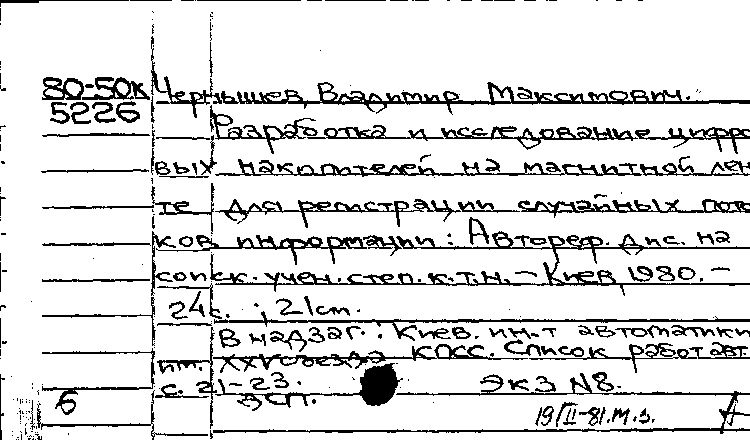 80-50к Чернышев, Владимир Максимович.
5226 Разработка и исследование цифро
вых накопителей на магнитной лен
те для регистрации случайных пото
ков информации: Автореф. дис. на
соиск. учен. степ. к.т.н. – Киев, 1980. –
24с. ; 21см.
В надзаг.: Киев. ин-т автоматики
им. XXV съезда КПСС. Список работ авт.
с. 21-23. Экз N8.
6 ДСП.
19/II-81.М.З.